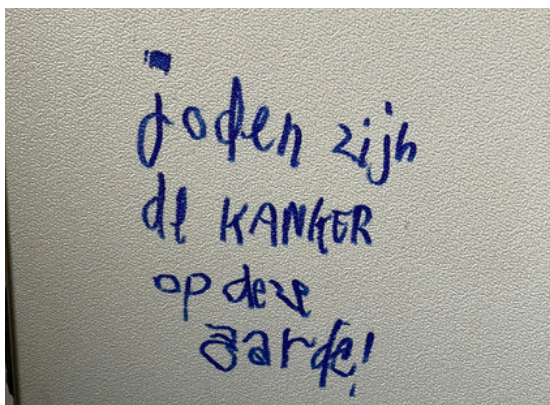 joden zijn
de KANKER
op deze
aarde!